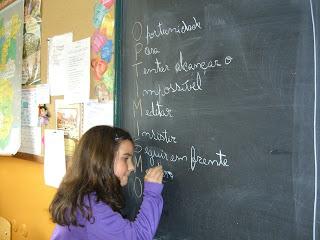 Oportunidade
Para
Tentar alcançar o
Impossível
Meditar
Insistir
Seguir em frente
M
O